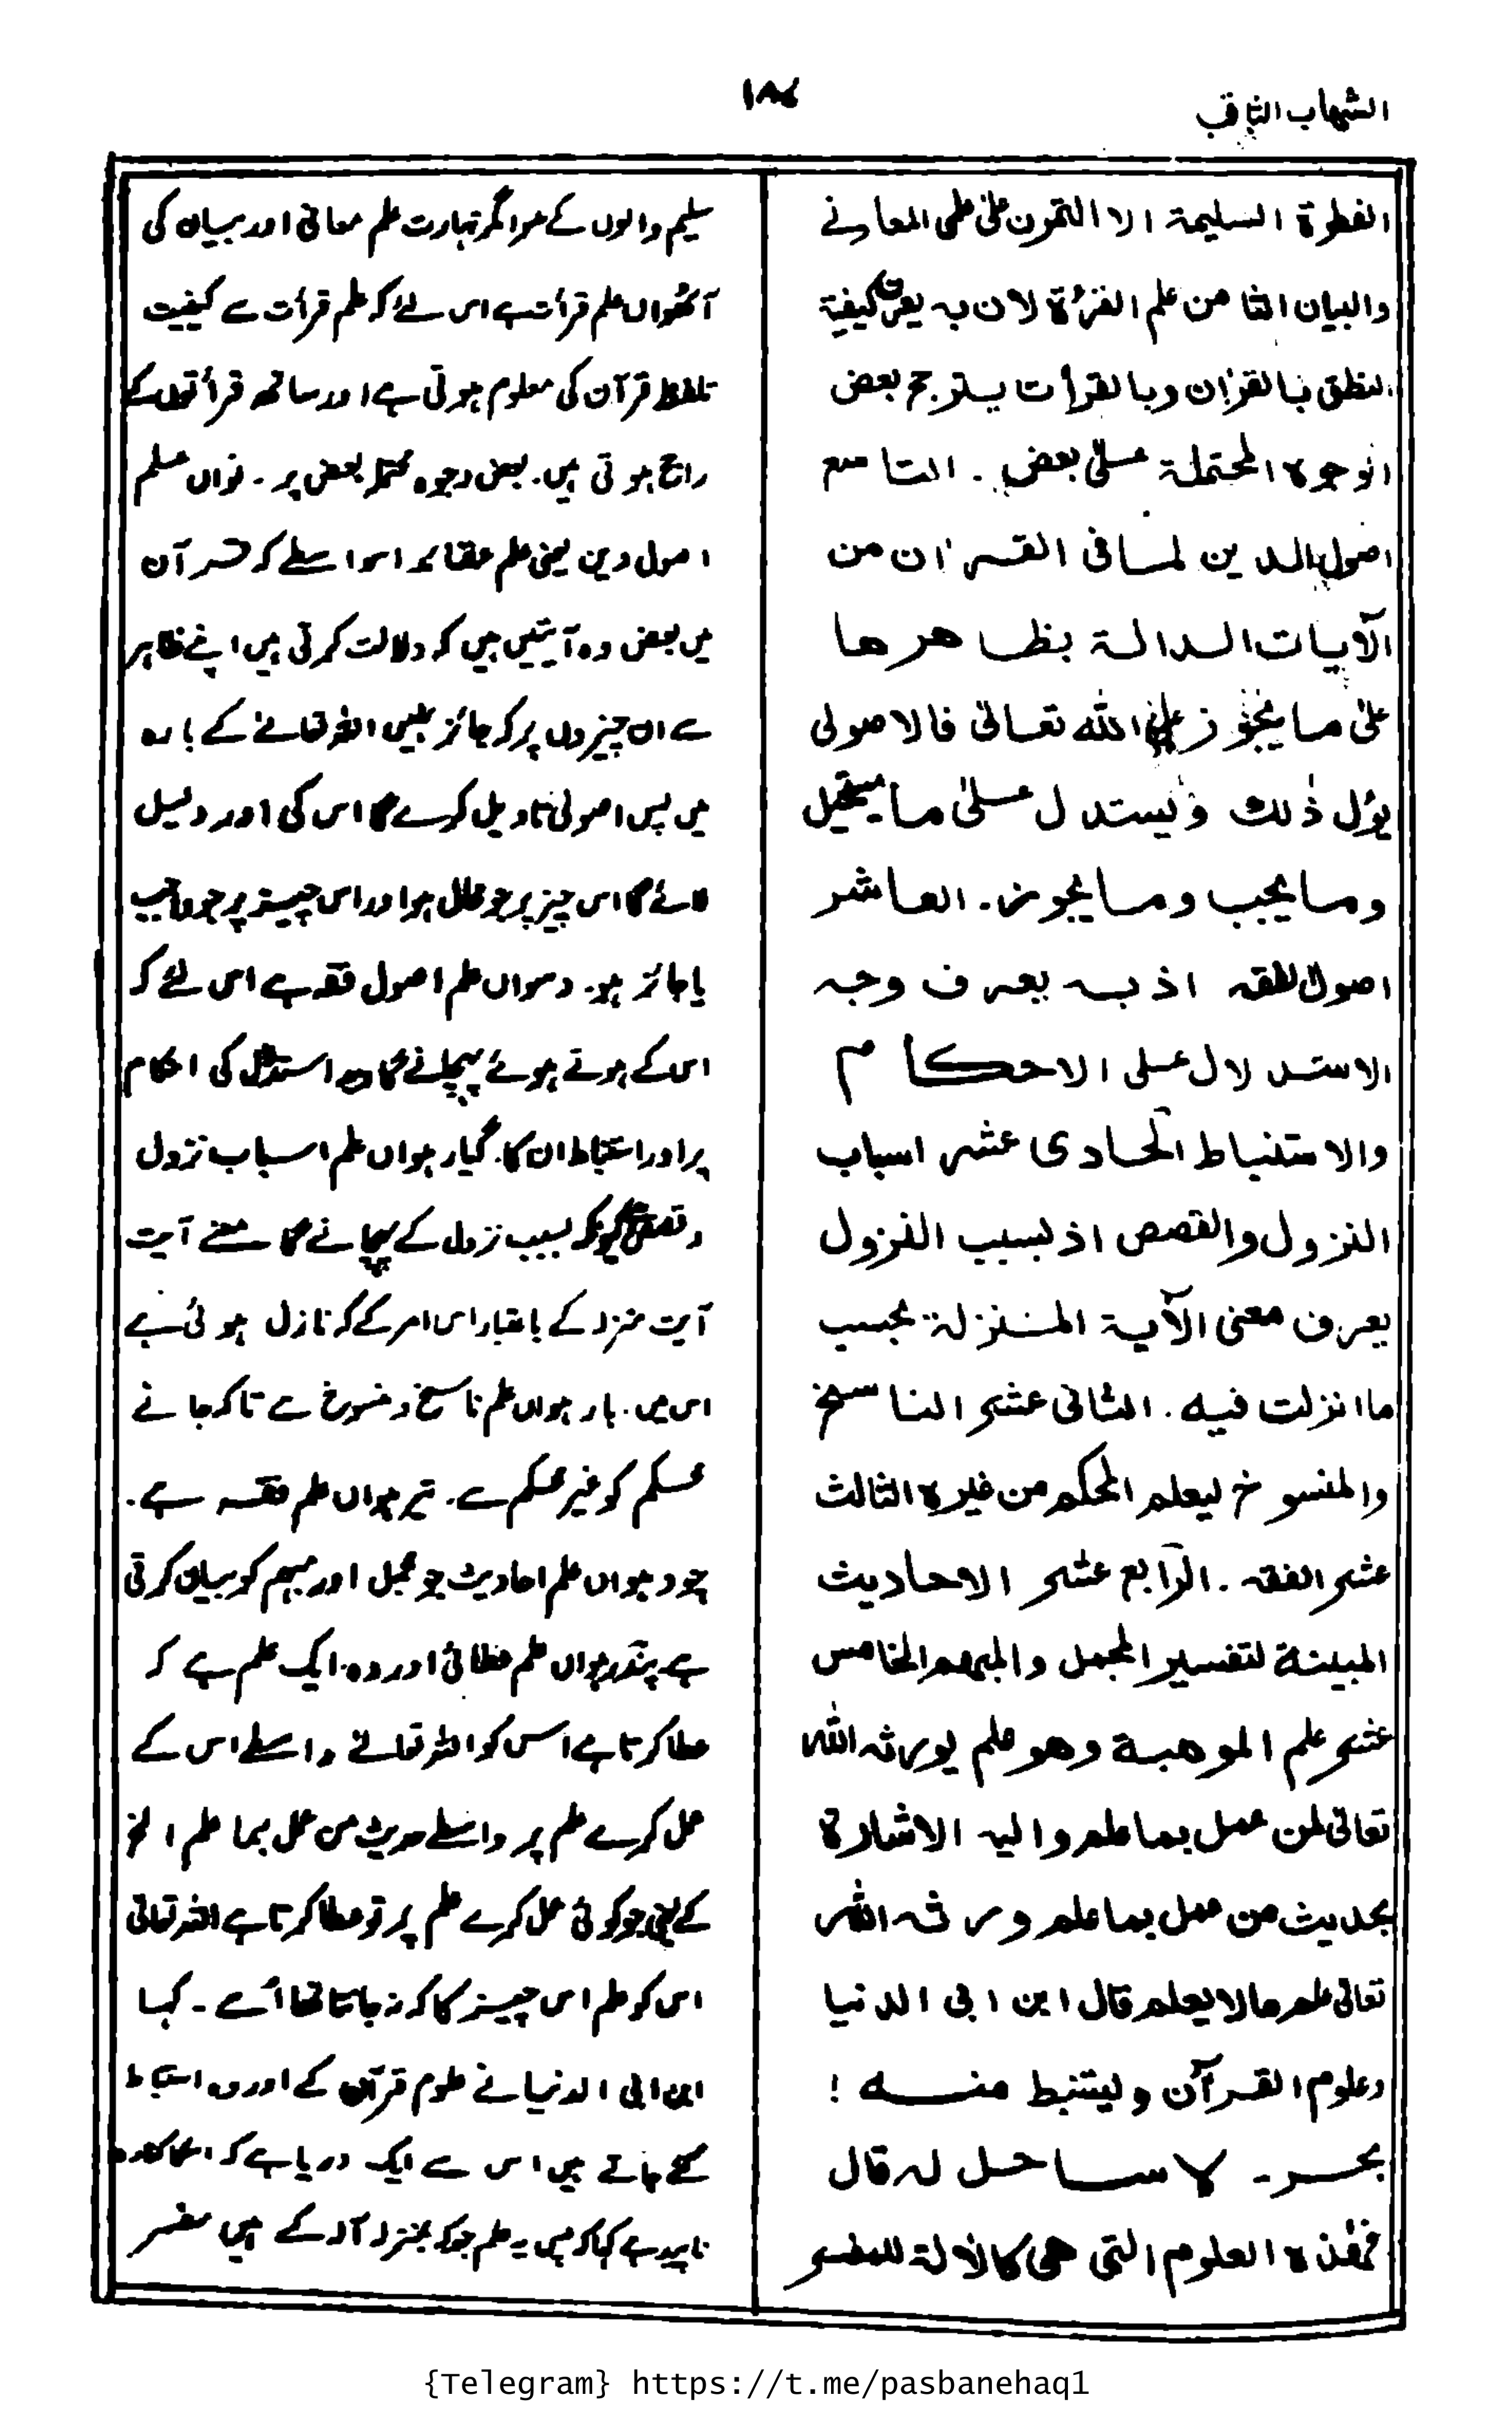 الشہاب الثاقب
۱۸۷
الفطرة السليمة الا التمرن على علمی المعانے
والبیان الثامن علم القرٰة لان به يعرف كيفية
النطق بالقرٰان وبالقرأت يترجح بعض
الوجوه المحتملة علىٰ بعض . التاسع
اصول الدين لما فى القرٰان من
الآيات الدالة بظاهرها
علىٰ ما يجوز على الله تعالىٰ فالاصولى
يؤل ذٰلك ويستدل علىٰ ما يستحيل
وما يجب وما يجوز . العاشر
اصول الفقه اذ به يعرف وجه
الاستدلال على الاحكام
والاستنباط الحادى عشر اسباب
النزول والقصص اذ بسبب النزول
يعرف معنى الآية المنزلة بحسب
ما انزلت فيه . الثانى عشر الناسخ
والمنسوخ ليعلم المحكم من غيره الثالث
عشر الفقه . الرابع عشر الاحاديث
المبينة لتفسير المجمل والمبهم الخامس
عشر علم الموهبة وهو علم يورثه الله
تعالىٰ لمن عمل بما علم واليه الاشارة
بحديث من عمل بما علم ورثه الله
تعالىٰ علم ما لا يعلم قال ابن ابى الدنيا
وعلوم القرآن وليتنبط منه !
بحر ۔ لا ساحل له قال
فهٰذه العلوم التى هى كالاٰلة للمفسر
سلیم والوں کے سوا مگر تہارت علم معانی اور بیان کی
آٹھواں علم قرأت ہے اس لئے کہ علم قرأت سے کیفیت
تلفظ قرآن کی معلوم ہوتی ہے اور ساتھ قرأتوں کے
راجح ہوتی ہیں. بعض وجوہ محتملہ بعض پر . نواں علم
اصول دین یعنی علم عقائد اسواسطے کہ قرآن
میں بعض وہ آیتیں ہیں کہ دلالت کرتی ہیں اپنے ظاہر
سے ان چیزوں پر کہ جائز نہیں اللہ تعالےٰ کے بارہ
میں پس اصولی تاویل کرے گا اس کی اور دلیل
لائے گا اس چیز پر جو محال ہو اور اس چیز پر جو واجب
یا جائز ہو. دسواں علم اصول فقہ ہے اس لئے کہ
اس کے ہوتے ہوئے پہچانے گا وجہ استدلال کی احکام
پر اور استنباط ان کا. گیارہواں علم اسباب نزول
و قصص کیونکہ بسبب نزول کے پہچانے گا معنے آیت
آیت منزلہ کے باعتبار اس امر کے کہ نازل ہوئی ہے
اس میں. بارہواں علم ناسخ و منسوخ ہے تاکہ جانے
محکم کو غیر محکم سے. تیرہواں علم فقہ ہے.
چودہواں علم احادیث جو مجمل اور مبہم کو بیان کرتی
ہے پندرہواں علم عطائی اور وہ ایک علم ہے کہ
عطا کرتا ہے اس کو اللہ تعالےٰ واسطے اس کے
عمل کرے علم پر واسطے حدیث من عمل بما علم الخ
کے یعنی جو کوئی عمل کرے علم پر تو عطا کرتا ہے اللہ تعالیٰ
اس کو علم اس چیز کا کہ نہ جانتا تھا اُسے ۔ کہا
ابن ابی الدنیا نے علوم قرآن کے اور استنباط
کئے جاتے ہیں اس سے ایک دریا ہے کہ اسکا کنارہ
ناپید ہے کہا کہ میں یہ علم جو کہ بمنزلہ آلہ کے ہیں مفسر
{Telegram} https://t.me/pasbanehaq1